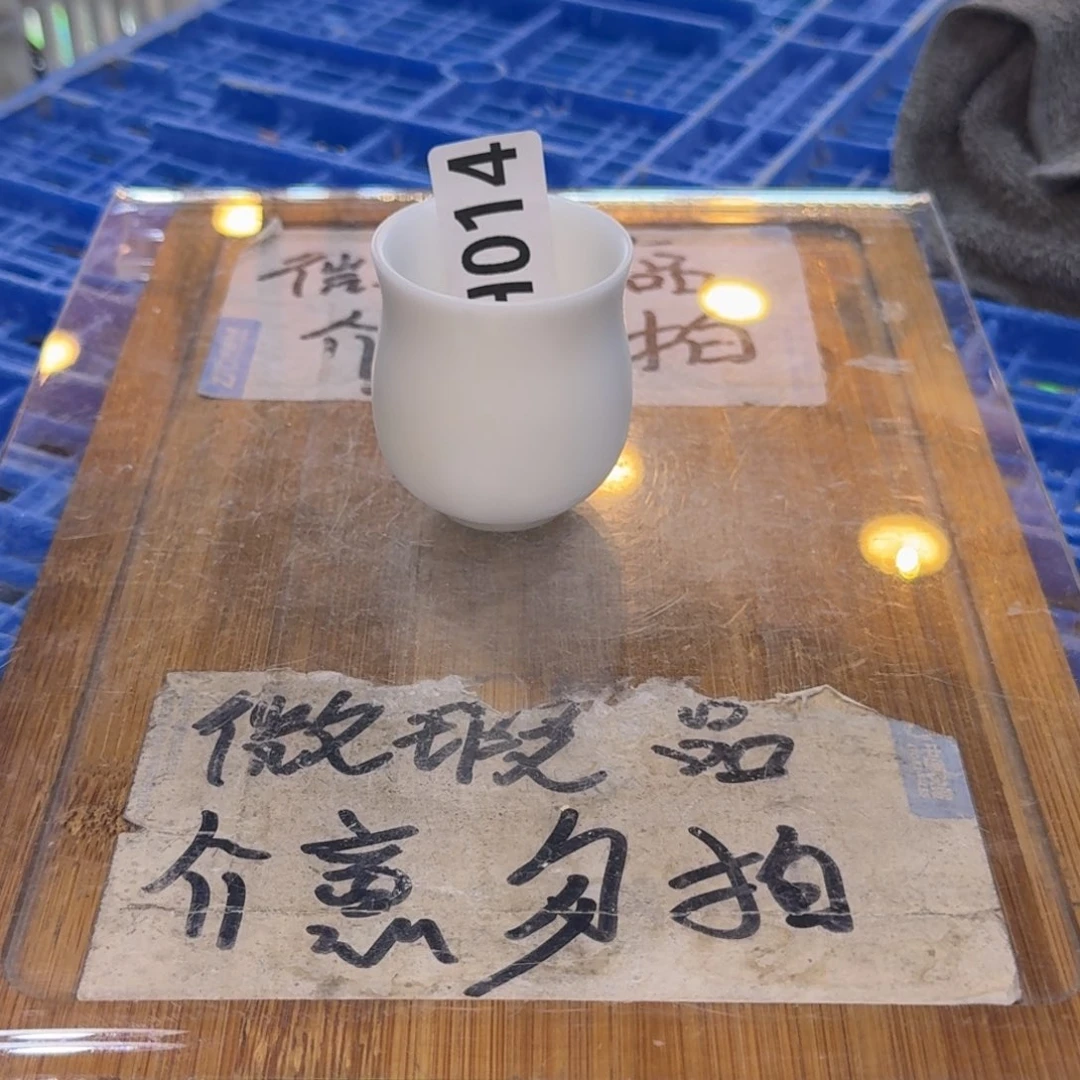 H014
微
品
介
拍
微瑕品
介意勿拍